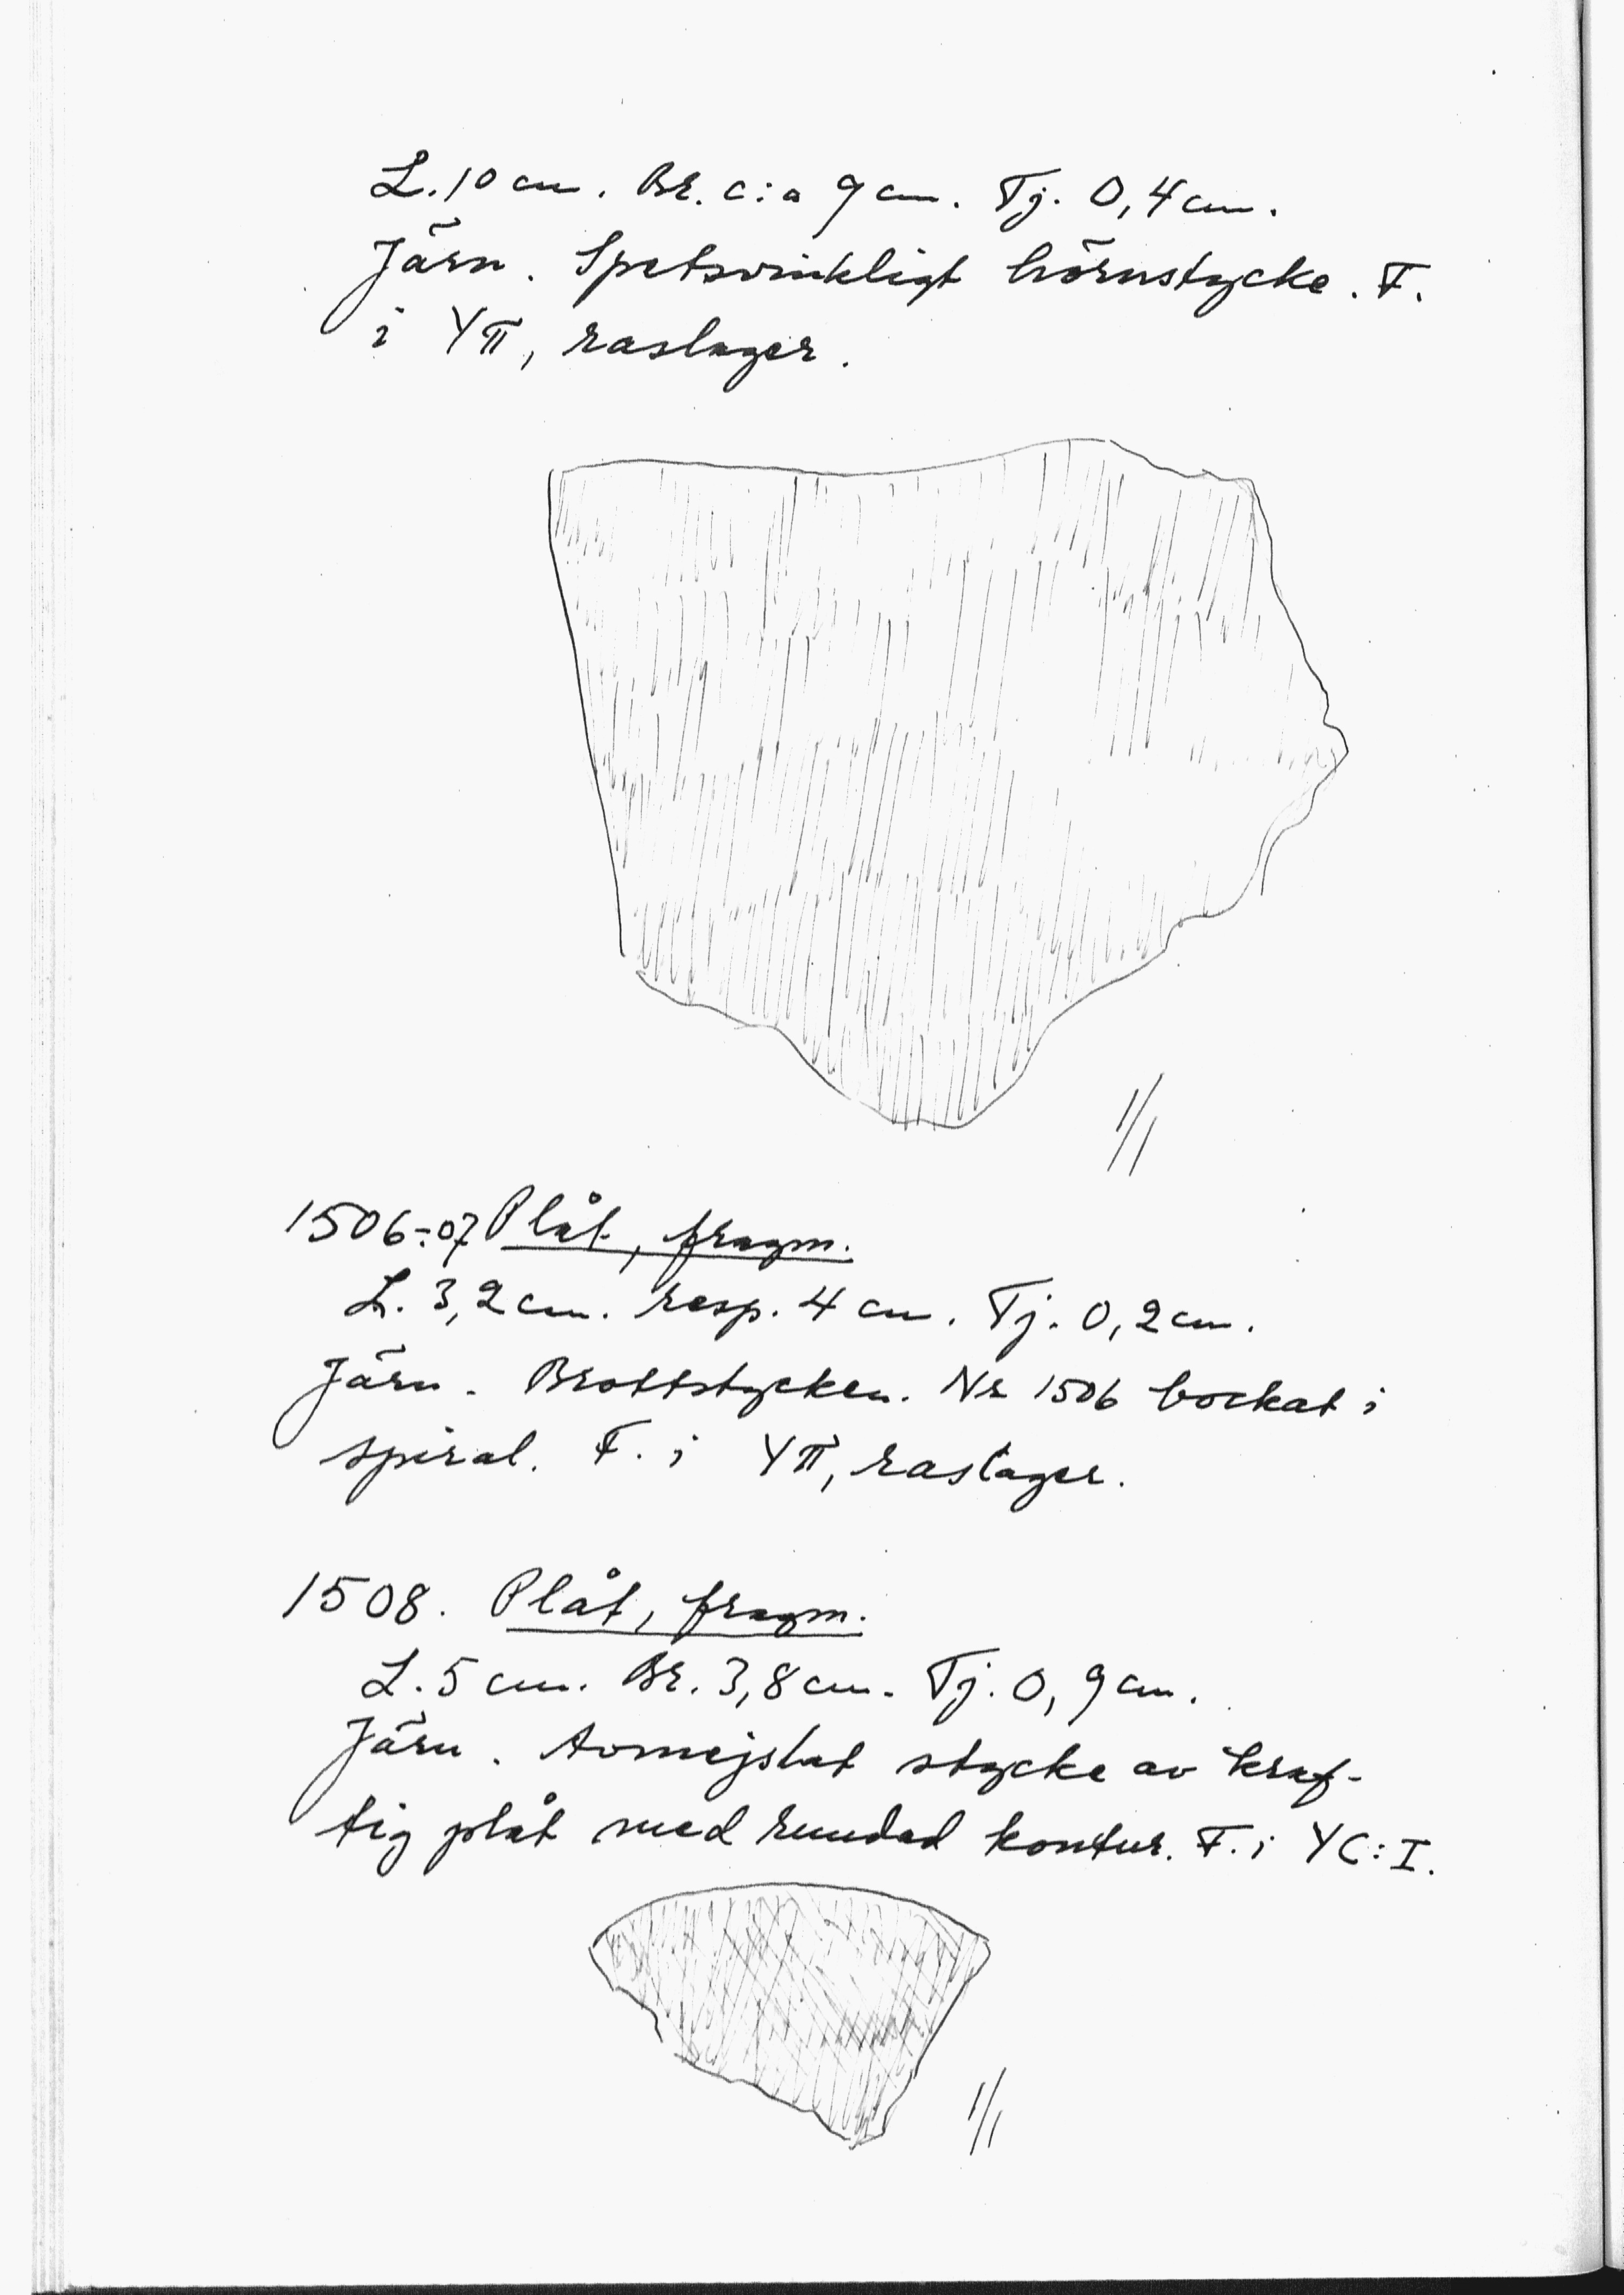 L. 10 cm. Br. c:a 9 cm. Tj. 0,4 cm.
Järn. Spetsvinkligt hörnstycke. F.
i YII, raslager.
1/1
1506-:07 Plåt, fragm.
L. 3,2 cm. resp. 4 cm. Tj. 0,2 cm.
Järn. Brottstycken. Nr 1506 bockat i
spiral. F. i YII, raslager.
1508. Plåt, fragm.
L. 5 cm. Br. 3,8 cm. Tj. 0,9 cm.
Järn. Avmejslat stycke av kraf-
tig plåt med rundad kontur. F. i YC:I.
1/1